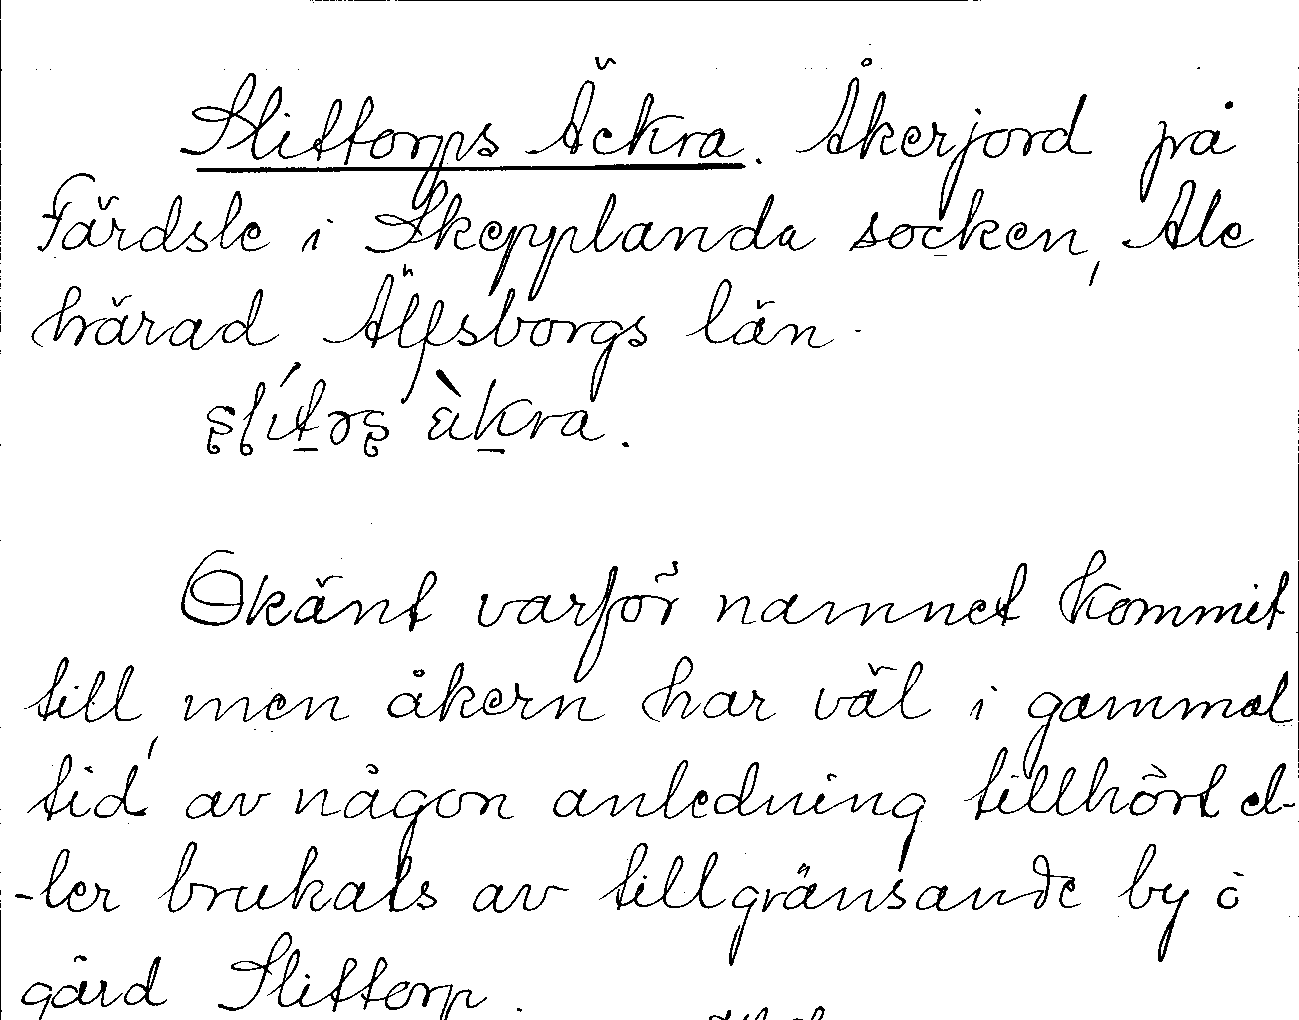 Slittorps Äckra. Åkerjord på
Färdsle i Skepplanda socken, Ale
härad, Älfsborgs län.
àkra.
Okänt varför namnet kommit
till, men åkern har väl i gammal
tid av någon anledning tillhört el-
-ler brukats av tillgränsande by o
gård Slittorp.